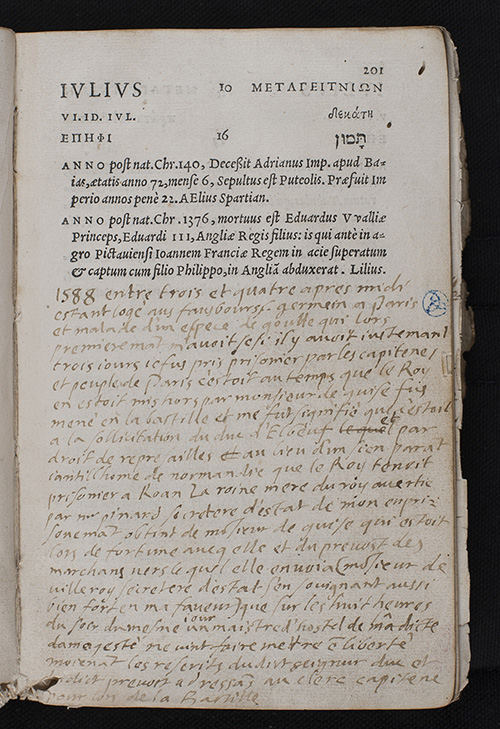 201
IVLIVS 10 ΜΕΤΑΓΕΙΤΝΙΩΝ
VI. ID. IVL. δεκάτῃ
ΕΠΗΦΙ 16 תמוז
ANNO post nat. Chr. 140, Decessit Adrianus Imp. apud Ba-
ias, ætatis anno 72, mense 6, Sepultus est Puteolis. Præfuit Im
perio annos penè 22. AElius Spartian.
ANNO post nat. Chr. 1376, mortuus est Eduardus Vvalliæ
Princeps, Eduardi III, Angliæ Regis filius: is qui ante in a-
gro Pictauiensi Ioannem Franciæ Regem in acie superatum
& captum cum filio Philippo, in Angliā abduxerat. Lilius.
1588 entre trois et quatre apres midi
estant logé aus fausbours S. germein a Paris
et malade d'un espece de goutte qui lors
premieremāt m'auoit sesi il y auoit iustemant
trois iours ie fus pris prisonier par les capitenes
et peuple de Paris c'estoit au temps que le Roy
en estoit mis hors par monsieur de guise fus
mené en la bastille et me fut signifié que c'estoit
a la sollicitation du duc d'Elbeuf et par
droit de represailles au lieu d'un sien parāt
iantilhome de normandie que le Roy tenoit
prisonier a Roan La roine mere du roy auertie
par mr pinard secretere d'estat de mon enpri-
sonemāt obtint de mosieur de guise qui estoit
lors de fortune aueq elle et du preuost des
marchans vers le quel elle enuoia (mosieur de
villeroy secretere d'estat s'en souignant aussi
bien fort en ma faueur) que sur les huit heures
du soer du mesme iour un maistre d'hostel de sa
magesté me vint faire mettre ē liberté
moienāt les rescrits dudict seigneur duc et
dudict preuost adressās au clerc capitene
pour lors de la Bastille